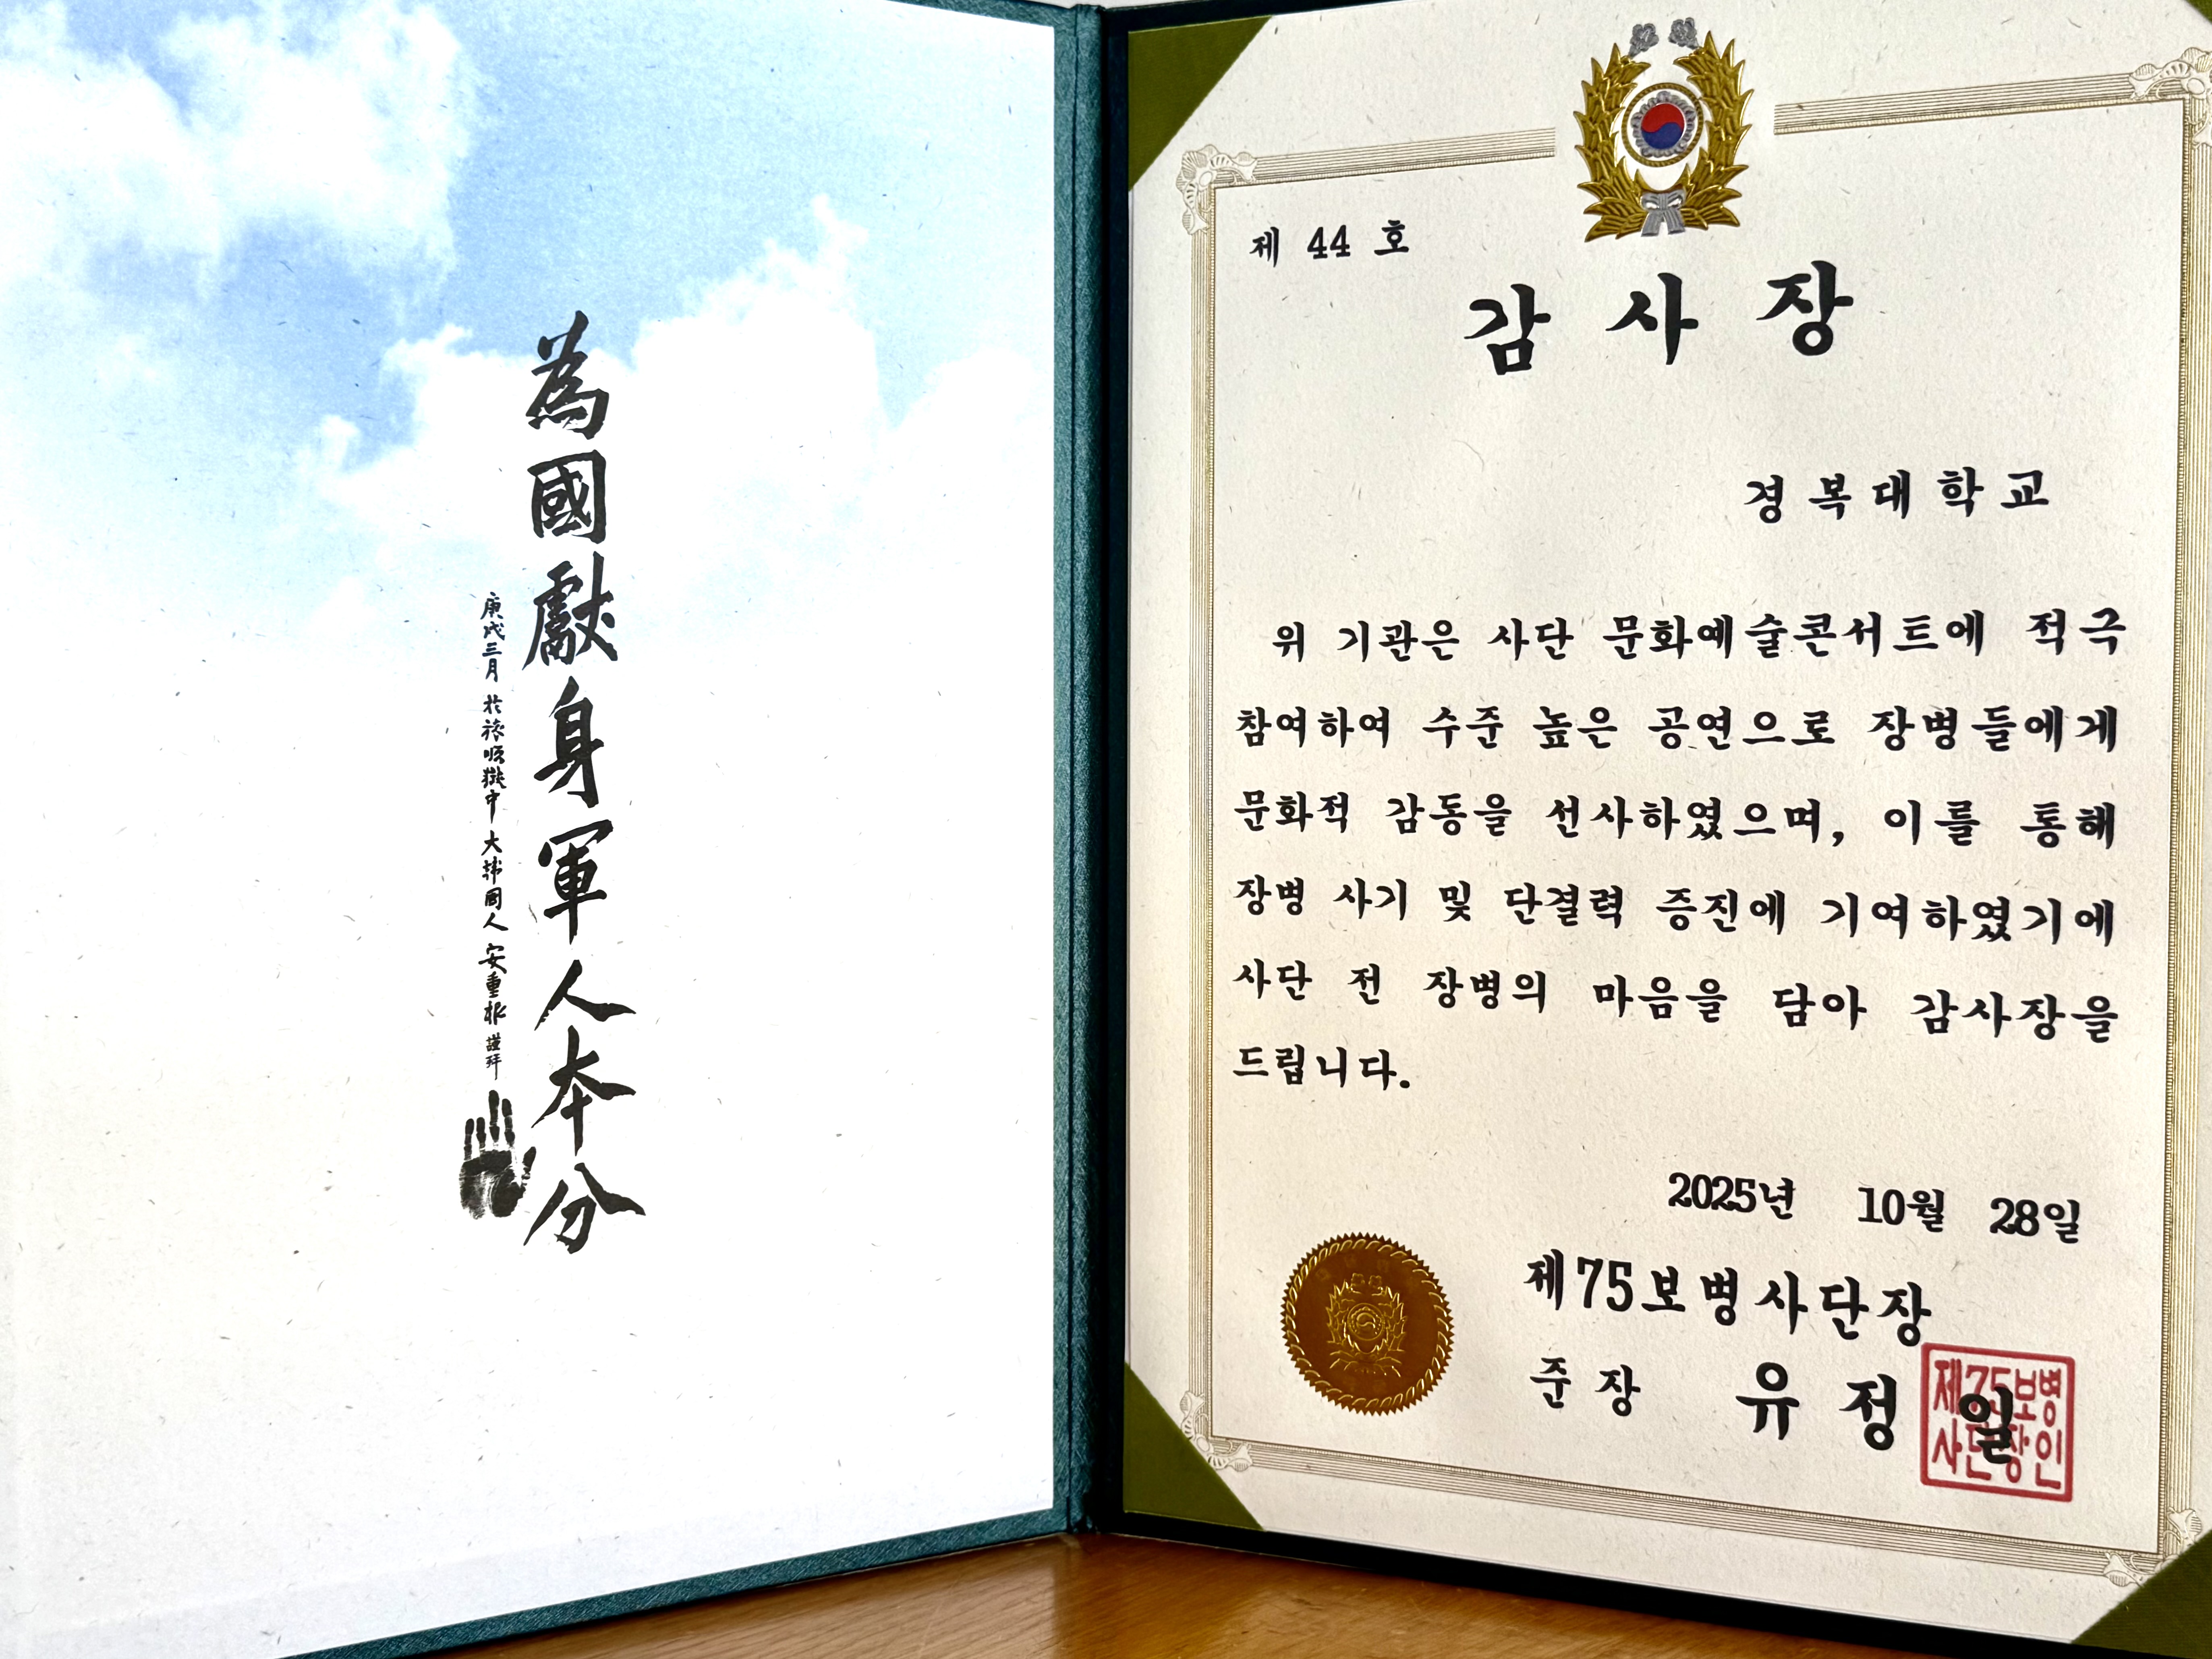 為國獻身軍人本分
庚戌三月 於旅順獄中 大韓國人 安重根 謹拜
제 44 호
감사장
경복대학교
위 기관은 사단 문화예술콘서트에 적극
참여하여 수준 높은 공연으로 장병들에게
문화적 감동을 선사하였으며, 이를 통해
장병 사기 및 단결력 증진에 기여하였기에
사단 전 장병의 마음을 담아 감사장을
드립니다.
2025년 10월 28일
제75보병사단장
준장 유정일
제75보병
사단장인